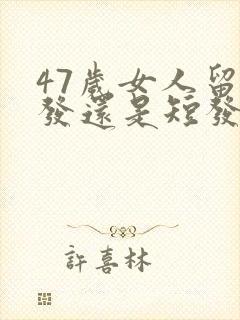 47歲女人留
發還是短發
許喜林